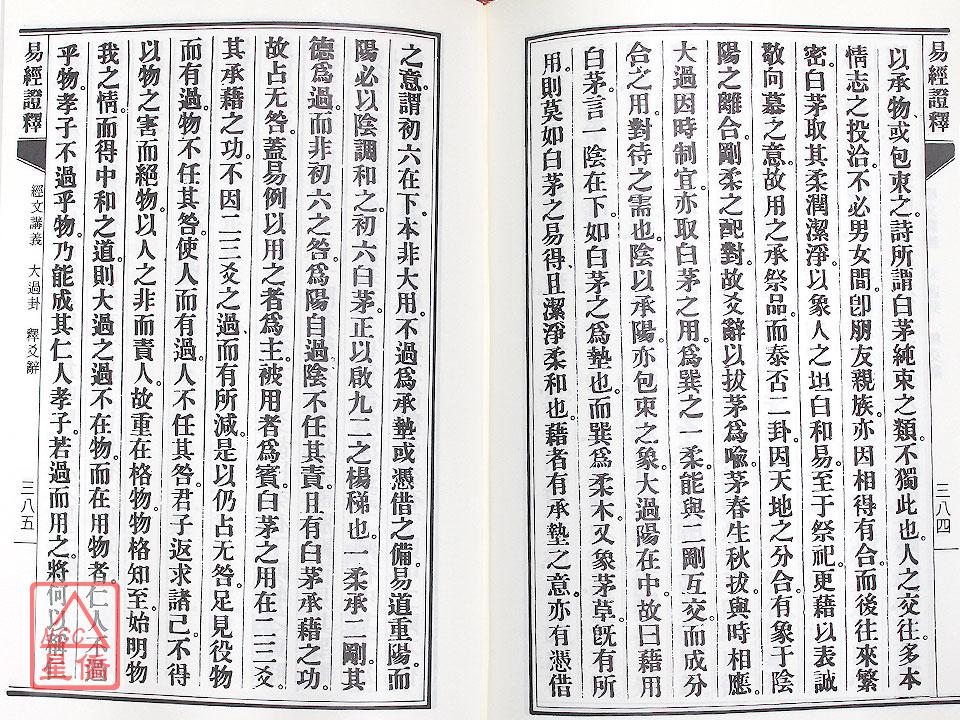 易經證釋
三八四
以承物、或包束之。詩所謂白茅純束之類。不獨此也。人之交往。多本
情志之投洽。不必男女間。卽朋友親族。亦因相得有合。而後往來繁
密。白茅取其柔潤潔淨。以象人之坦白和易。至于祭祀。更藉以表誠
敬向慕之意。故用之承祭品。而泰否二卦。因天地之分合。有象于陰
陽之離合。剛柔之配對。故爻辭以拔茅爲喩。茅春生秋拔。與時相應。
大過因時制宜。亦取白茅之用。爲巽之一柔。能與二剛互交。而成分
合之用。對待之需也。陰以承陽。亦包束之象。大過陽在中。故曰藉用
白茅。言一陰在下。如白茅之爲墊也。而巽爲柔木。又象茅草。旣有所
用。則莫如白茅之易得、且潔淨柔和也。藉者有承墊之意。亦有憑借
之意。謂初六在下。本非大用。不過爲承墊或憑借之備。易道重陽。而
陽必以陰調和之。初六白茅。正以啟九二之楊稊也。一柔承二剛。其
德爲過。而非初六之咎。爲陽自過。陰不任其責。且有白茅承藉之功。
故占无咎。蓋易例以用之者爲主。被用者爲賓。白茅之用在二三爻。
其承藉之功。不因二三爻之過、而有所減。是以仍占无咎。足見役物
而有過。物不任其咎。使人而有過。人不任其咎。君子返求諸己。不得
以物之害而絕物。以人之非而責人。故重在格物。物格知至。始明物
我之情。而得中和之道。則大過之過不在物。而在用物者。仁人不過
乎物。孝子不過乎物。乃能成其仁人孝子。若過而用之。將何以
易經證釋
經文講義 大過卦 釋爻辭
三八五
星僑